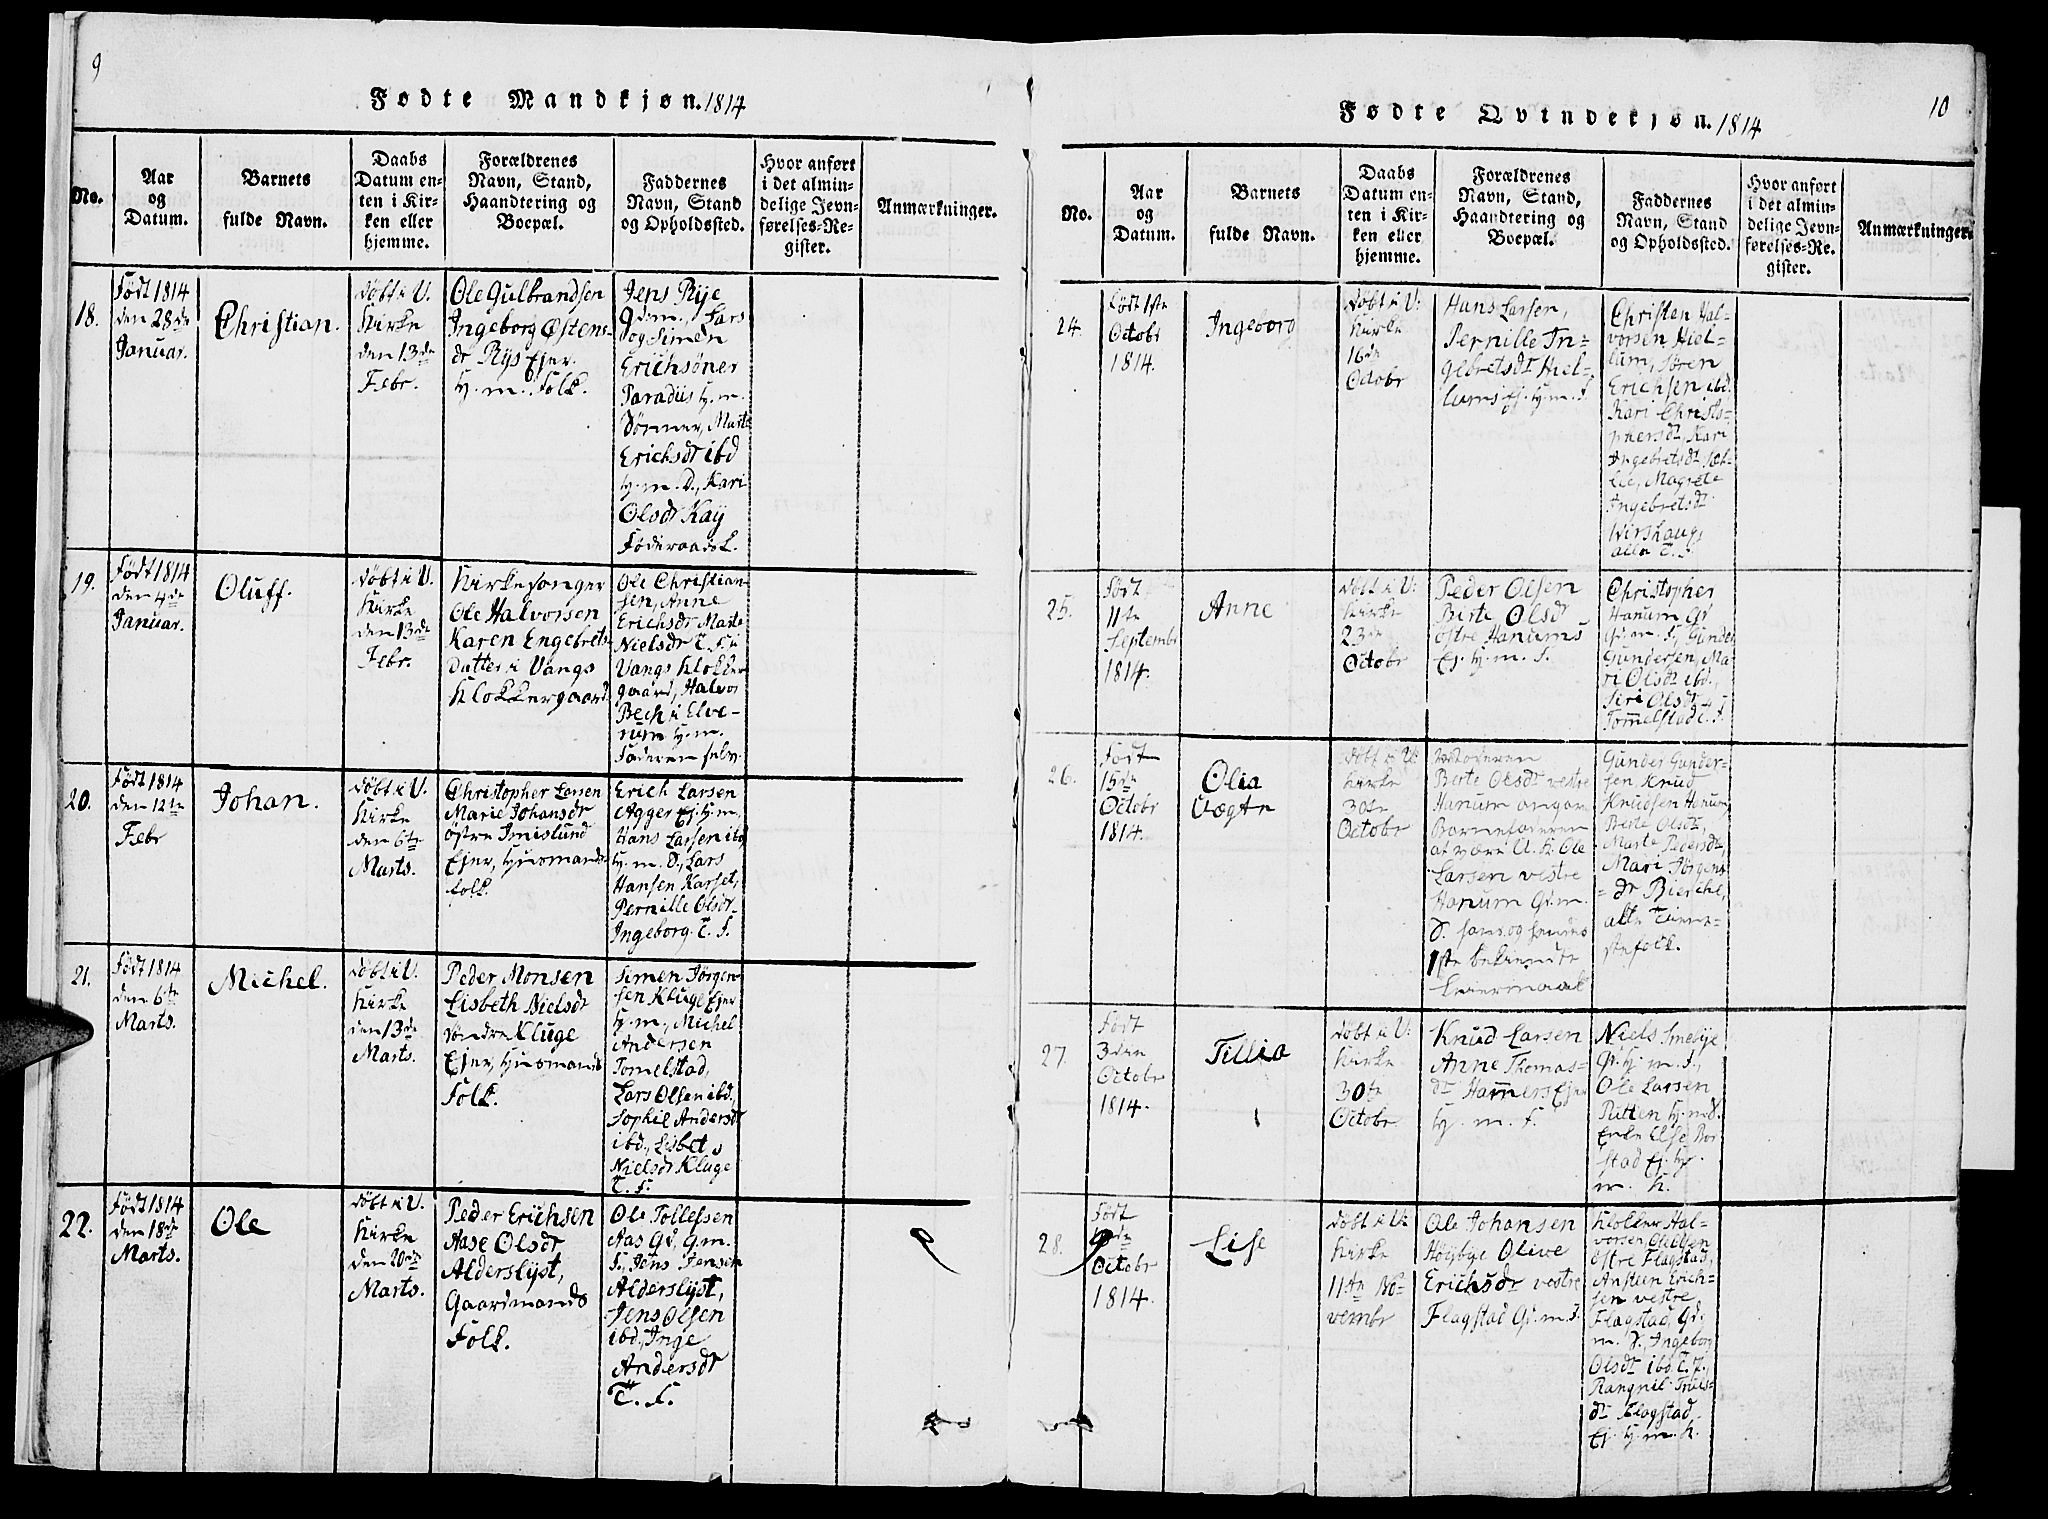 9
Fødte Mandkjøn. 1814
No.
Aar
og
Datum.
Barnets
fulde Navn.
Daabs
Datum en-
ten i Kir-
ken eller
hjemme.
Forældrenes
Navn, Stand,
Haandtering og
Boepæl.
Faddernes
Navn, Stand
og Opholdssted.
Hvor anført
i det almin-
delige Jevn-
førelses-Re-
gister.
Anmærkninger.
18.
Født 1814
den 28de
Januar.
Christian.
døbt i V.
Kirke
den 13de
Febr.
Ole Gulbrandsen
Ingeborg Østens-
dr Rys Ejer.
H. m. Folk.
Jens Rye
G. m., Lars
og Simen
Erichsöner
Paradiis H. m.
Sønner, Marte
Erichsdr ibd
H. m. D., Kari
Olsdr Kay
Føderaads K.
19.
Født 1814
den 4de
Januar.
Oluff.
døbt i V.
Kirke
den 13de
Febr.
Kirkesanger
Ole Halvorsen
Karen Engebrets-
datter i Vangs
Klokkergaard.
Ole Christian-
sen, Anne
Erichsdr Marte
Nielsdr T. F. i
Vangs Klokker
gaard, Halvor
Bech i Elve-
rum H. m.
Faderen selv.
20.
Født 1814
den 12te
Febr
Johan.
døbt i V.
Kirke
den 6te
Marts.
Christopher Larsen
Marie Johansdr
østre Imislund
Ejer, Huusmands-
folk.
Erich Larsen
Agger Ej. H. m.
Hans Larsen ibd
H. m. S., Lars
Hansen Karset,
Pernille Olsdr
Ingeborg. T. F.
21.
Født 1814
den 6te
Marts.
Michel.
døbt i V.
Kirke
den 13de
Marts.
Peder Monsen
Lisbeth Nielsdr
søndre Kluge
Ejer, Huusmands
Folk.
Simen Jørgen-
sen Kluge Ejer
H. m., Michel
Andersen
Tomelstad,
Lars Olsen ibd.,
Sophie Andersdr
ibd., Lisbet
Nielsdr Kluge
T. F.
22.
Født 1814
den 18de
Marts.
Ole
døbt i V.
Kirke
den 20de
Marts.
Peder Erichsen
Aase Olsdr
Alderslyst,
Gaardmands
Folk.
Ole Tollefsen
Aas Gd. G. m.
F., Jens Jensen
Alderslyst,
Jens Olsen
ibd., Inge
Andersdr
T. F.
10
Fødte Qvindekjøn. 1814
No.
Aar
og
Datum.
Barnets
fulde Navn.
Daabs
Datum en-
ten i Kir-
ken eller
hjemme.
Forældrenes
Navn, Stand,
Haandtering og
Boepæl.
Faddernes
Navn, Stand
og Opholdssted.
Hvor anført
i det almin-
delige Jevn-
førelses-Re-
gister.
Anmærkninger.
24.
Født 1ste
Octobr
1814.
Ingeborg
døbt i V:
Kirke
16de
Octobr
Hans Larsen,
Pernille In-
gebretsdr Hiel-
lums Ej. H. m. F
Christen Hal-
vorsen Hiel-
lum, Søren
Erichsen ibd.
Kari Christo-
phersdr, Kari
Ingebretsdr
Magrete
Ingebretsdr
alle T. F.
25.
Født
11te
Septembr
1814.
Anne
døbt i V:
Kirke
23de
Octobr
Peder Olsen
Berte Olsdr
østre Hanums
Ej. H. m. F.
Christopher
Hanum Gd
G. m. F., Gunder
Gundersen, Ma-
ri Olsdr ibd.,
Siri Olsdr
Tomelstad T. F.
26.
Født
15de
Octobr
1814.
Olia
Vægte
døbt i V:
Kirke
30te
Octobr
Moderen
Berte Olsdr vestre
Hanum angav
Barnefaderen
at være U. K. Ole
Larsen vestre
Hanum Gd. m.
S. hans og hendes
1ste bekiendte
Leiermaal
Gunder Gunder-
sen Knud
Knudsen Hanum
Berte Olsdr,
Marte Pedersdr,
Mari Jörgens-
dr Bierche,
alle Tiene-
stefolk.
27.
Født
3die
Octobr
1814.
Tillia
døbt i V:
Kirke
30te
Octobr
Knud Larsen
Anne Thomas-
dr Hamers Ejer
H. m. F.
Niels Smebye
Gr. H. m. F.,
Ole Larsen
Ritten H. m. S.
Enke Else
stad Ej. H.
m. K.
28.
Født
Octobr
1814.
Lise
døbt i V:
Kirke
11te No-
vembr
Ole Johansen
Høysbye Olive
Erichsdr vestre
Flagstad Gd. m. F.
Klokker Hal-
vorsen Olelsen
østre Flagstad,
Ansteen Erich-
sen vestre
Flagstad, Gd.
m. S., Ingeborg
Olsdr ibd. T. F.,
Rangnil Truls-
dr Flagstad
Ej. H. m. K.